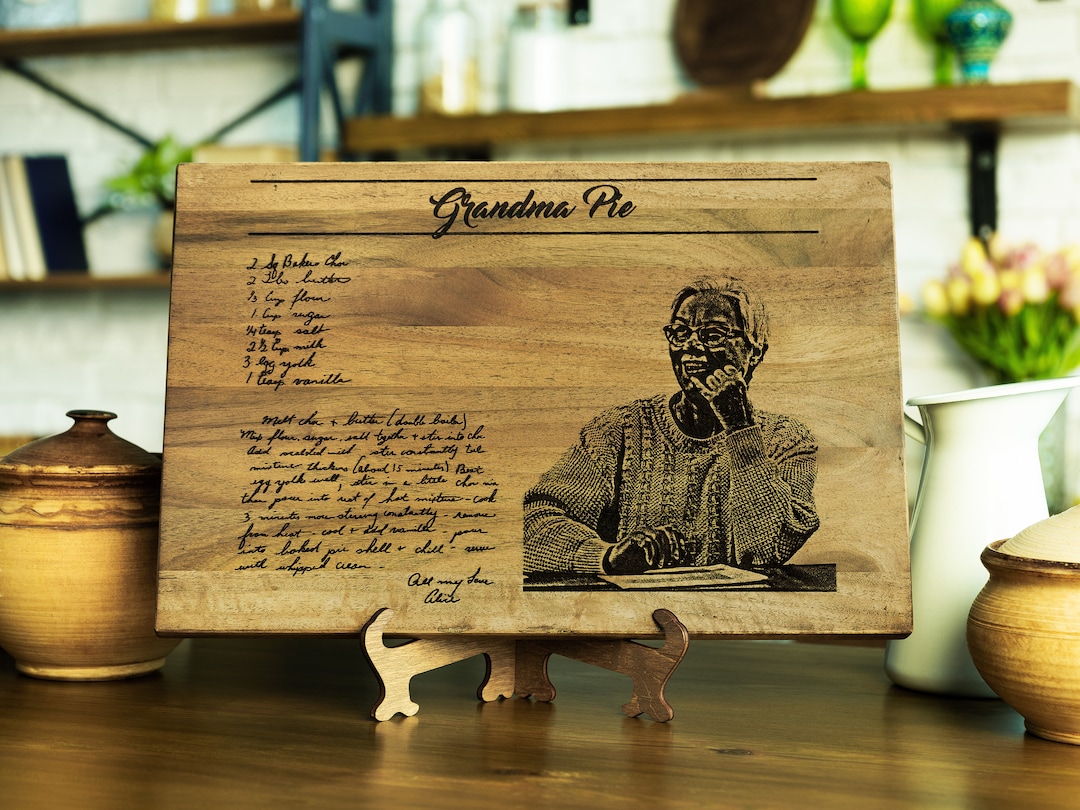 Grandma Pie
2 Sq Bakers Choc
2 Tbs butter
1/3 Cup flour
1 Cup sugar
1/4 teasp salt
2 1/2 Cups milk
3 egg yolk
1 teasp vanilla
Melt choc + butter (double boiler)
Mix flour, sugar, salt together + stir into choc
Add milk stir constantly til
mixture thickens (about 15 minutes) Beat
egg yolk well, stir in a little choc mix
then pour into rest of hot mixture - cook
3 minutes more stirring constantly - remove
from heat - cool + add vanilla - pour
into baked pie shell + chill - serve
with whipped cream -
All my Love